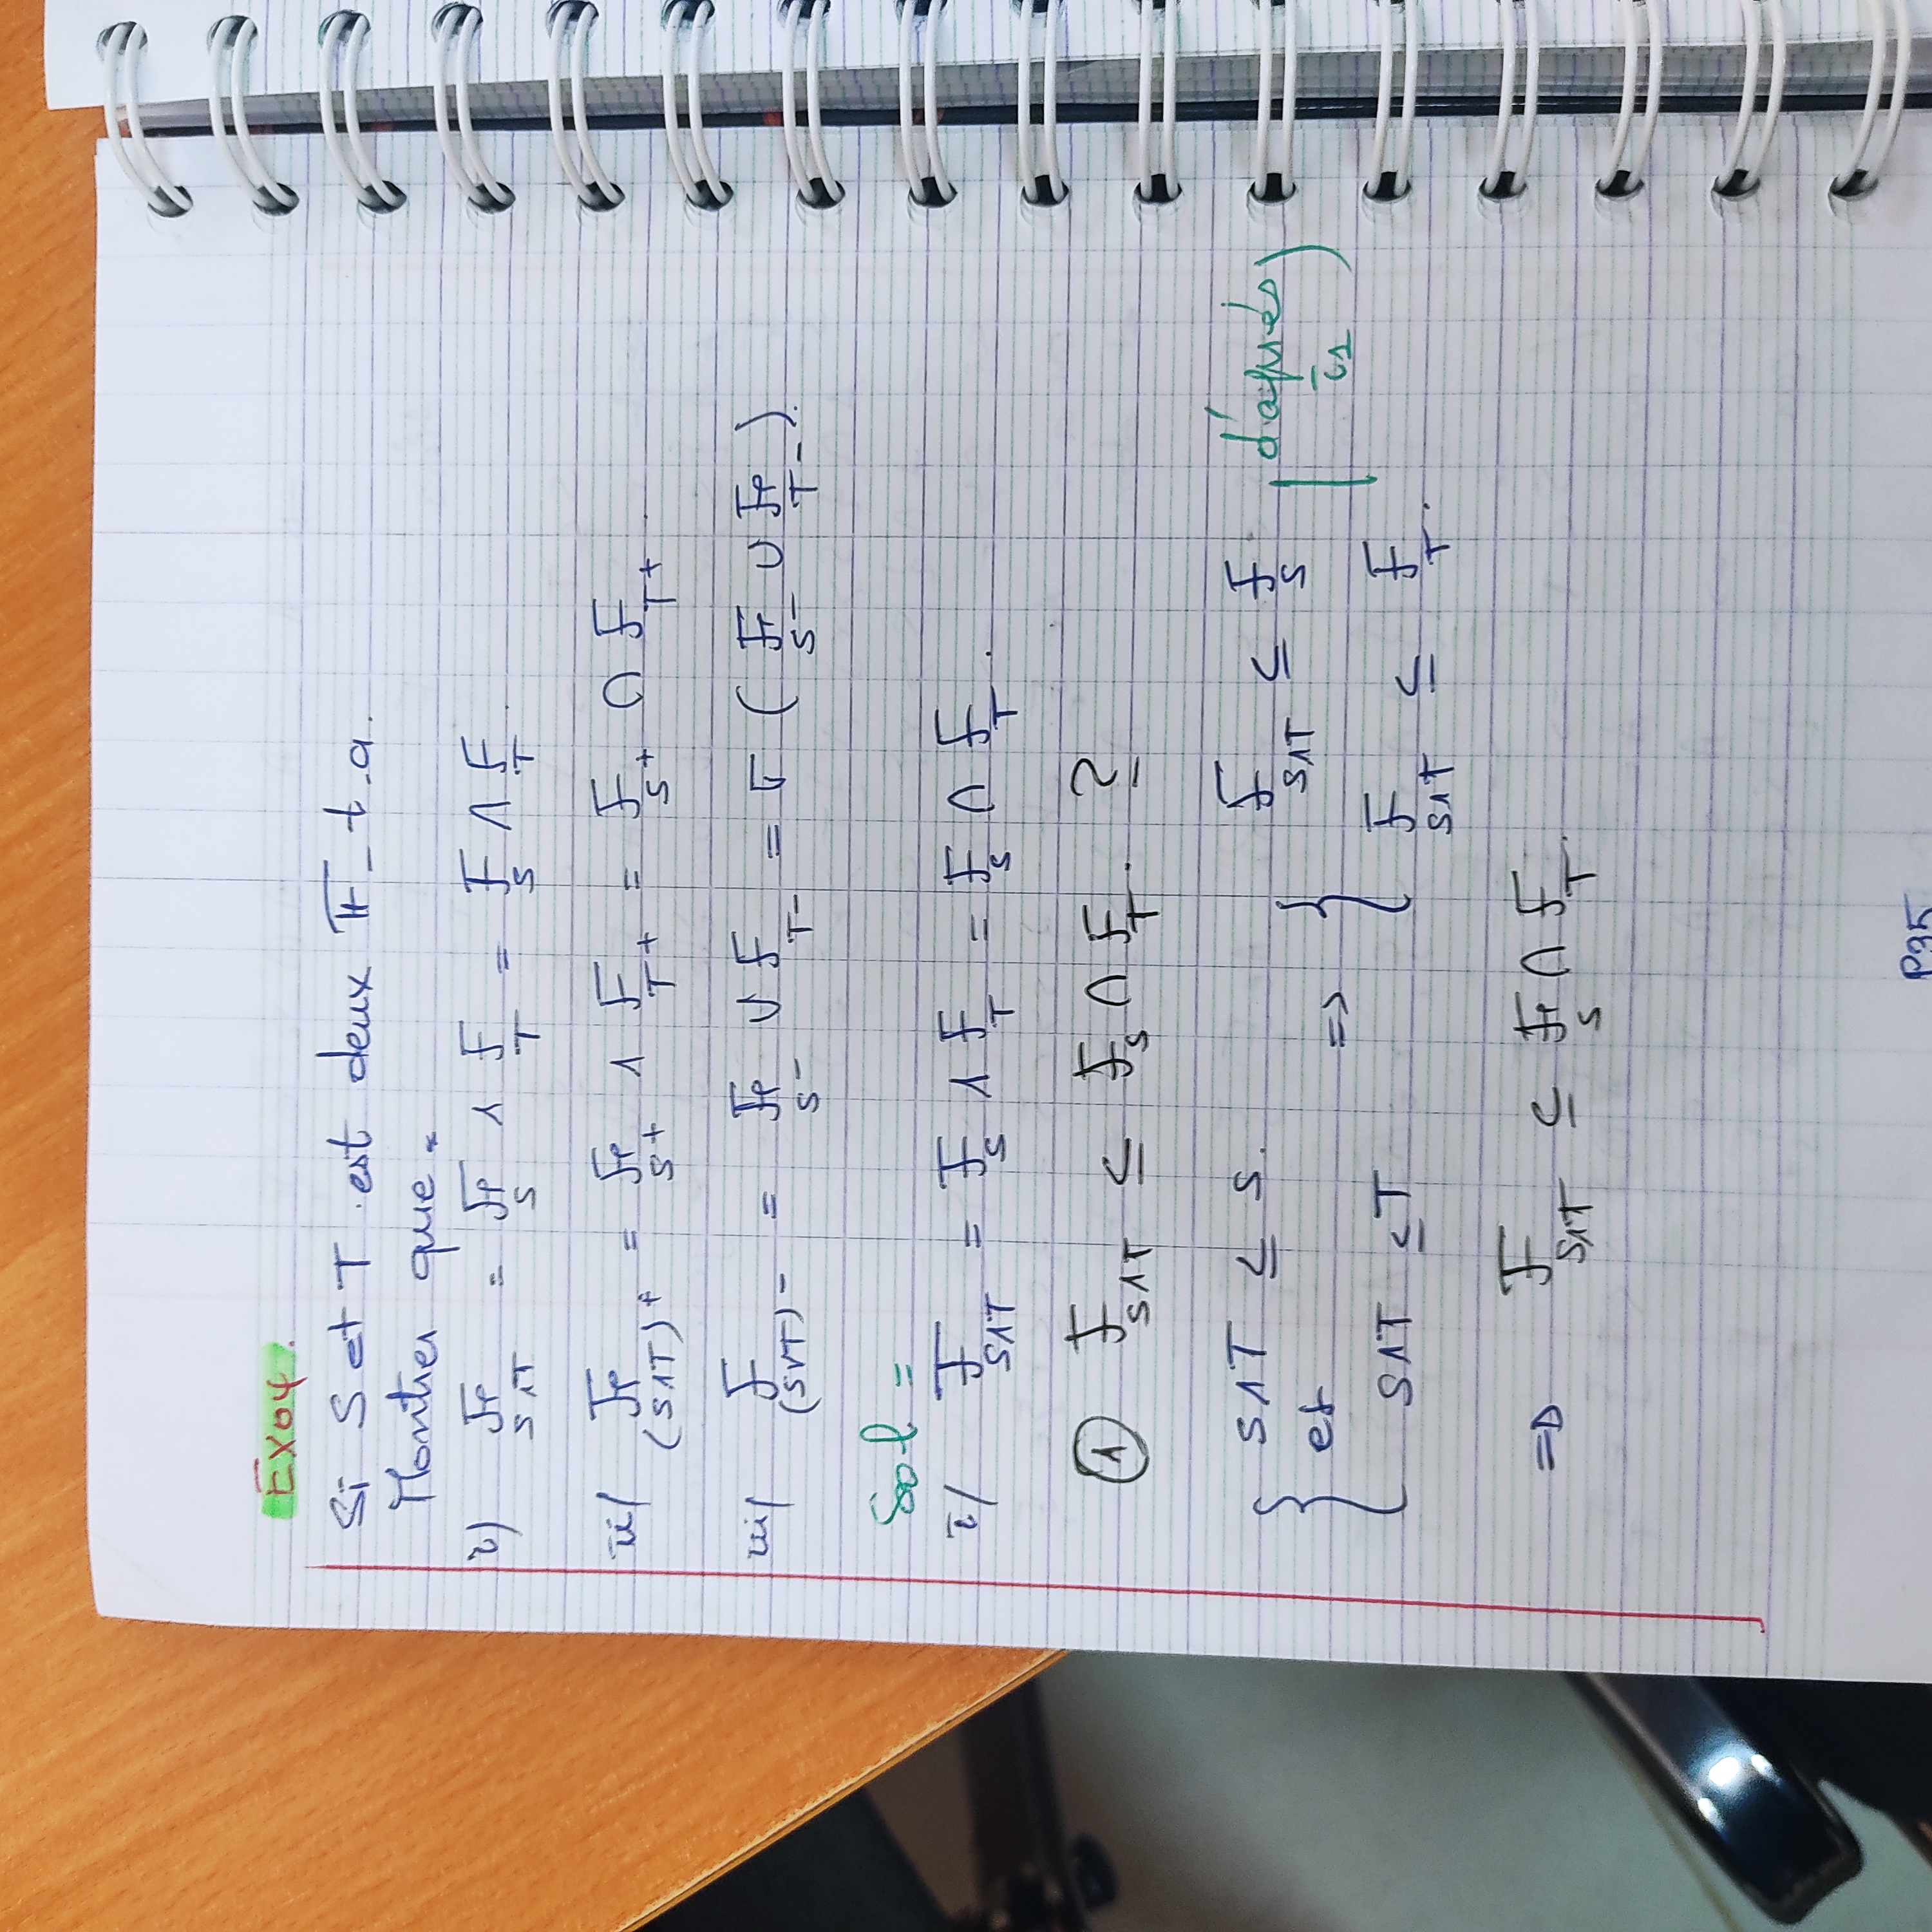 Ex04.
Si S et T est deux 𝔽-t-a.
Montrer que.
i) F_{S∧T} = F_S ∧ F_T = F_S ∩ F_T.
ii/ F_{(S∧T)^+} = F_{S^+} ∧ F_{T^+} = F_{S^+} ∩ F_{T^+}.
iii/ F_{(S∨T)^-} = F_{S^-} ∨ F_{T^-} = σ(F_{S^-} ∪ F_{T^-}).
Sol =
i/ F_{S∧T} = F_S ∧ F_T = F_S ∩ F_T.
① F_{S∧T} ⊆ F_S ∩ F_T. ?
{ S∧T ≤ S. et S∧T ≤ T => { F_{S∧T} ⊆ F_S F_{S∧T} ⊆ F_T. | d'après i1)
=> F_{S∧T} ⊆ F_S ∩ F_T.
P35